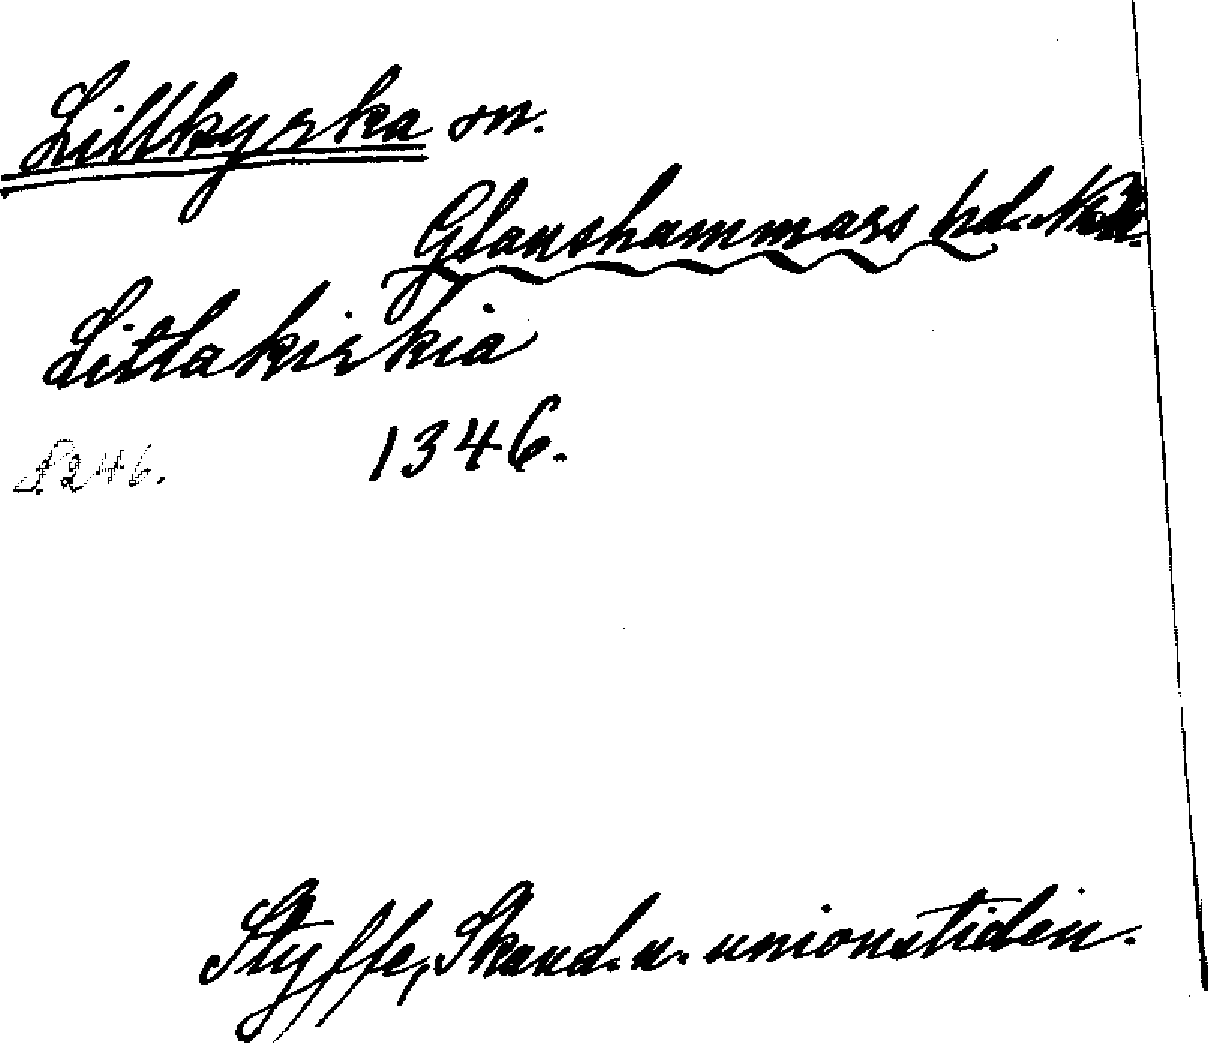 Lillkyrka sn.
Glanshammars hd.
Litlakirkia
1346.
S. 246.
Styffe, Skand. u. unionstiden.